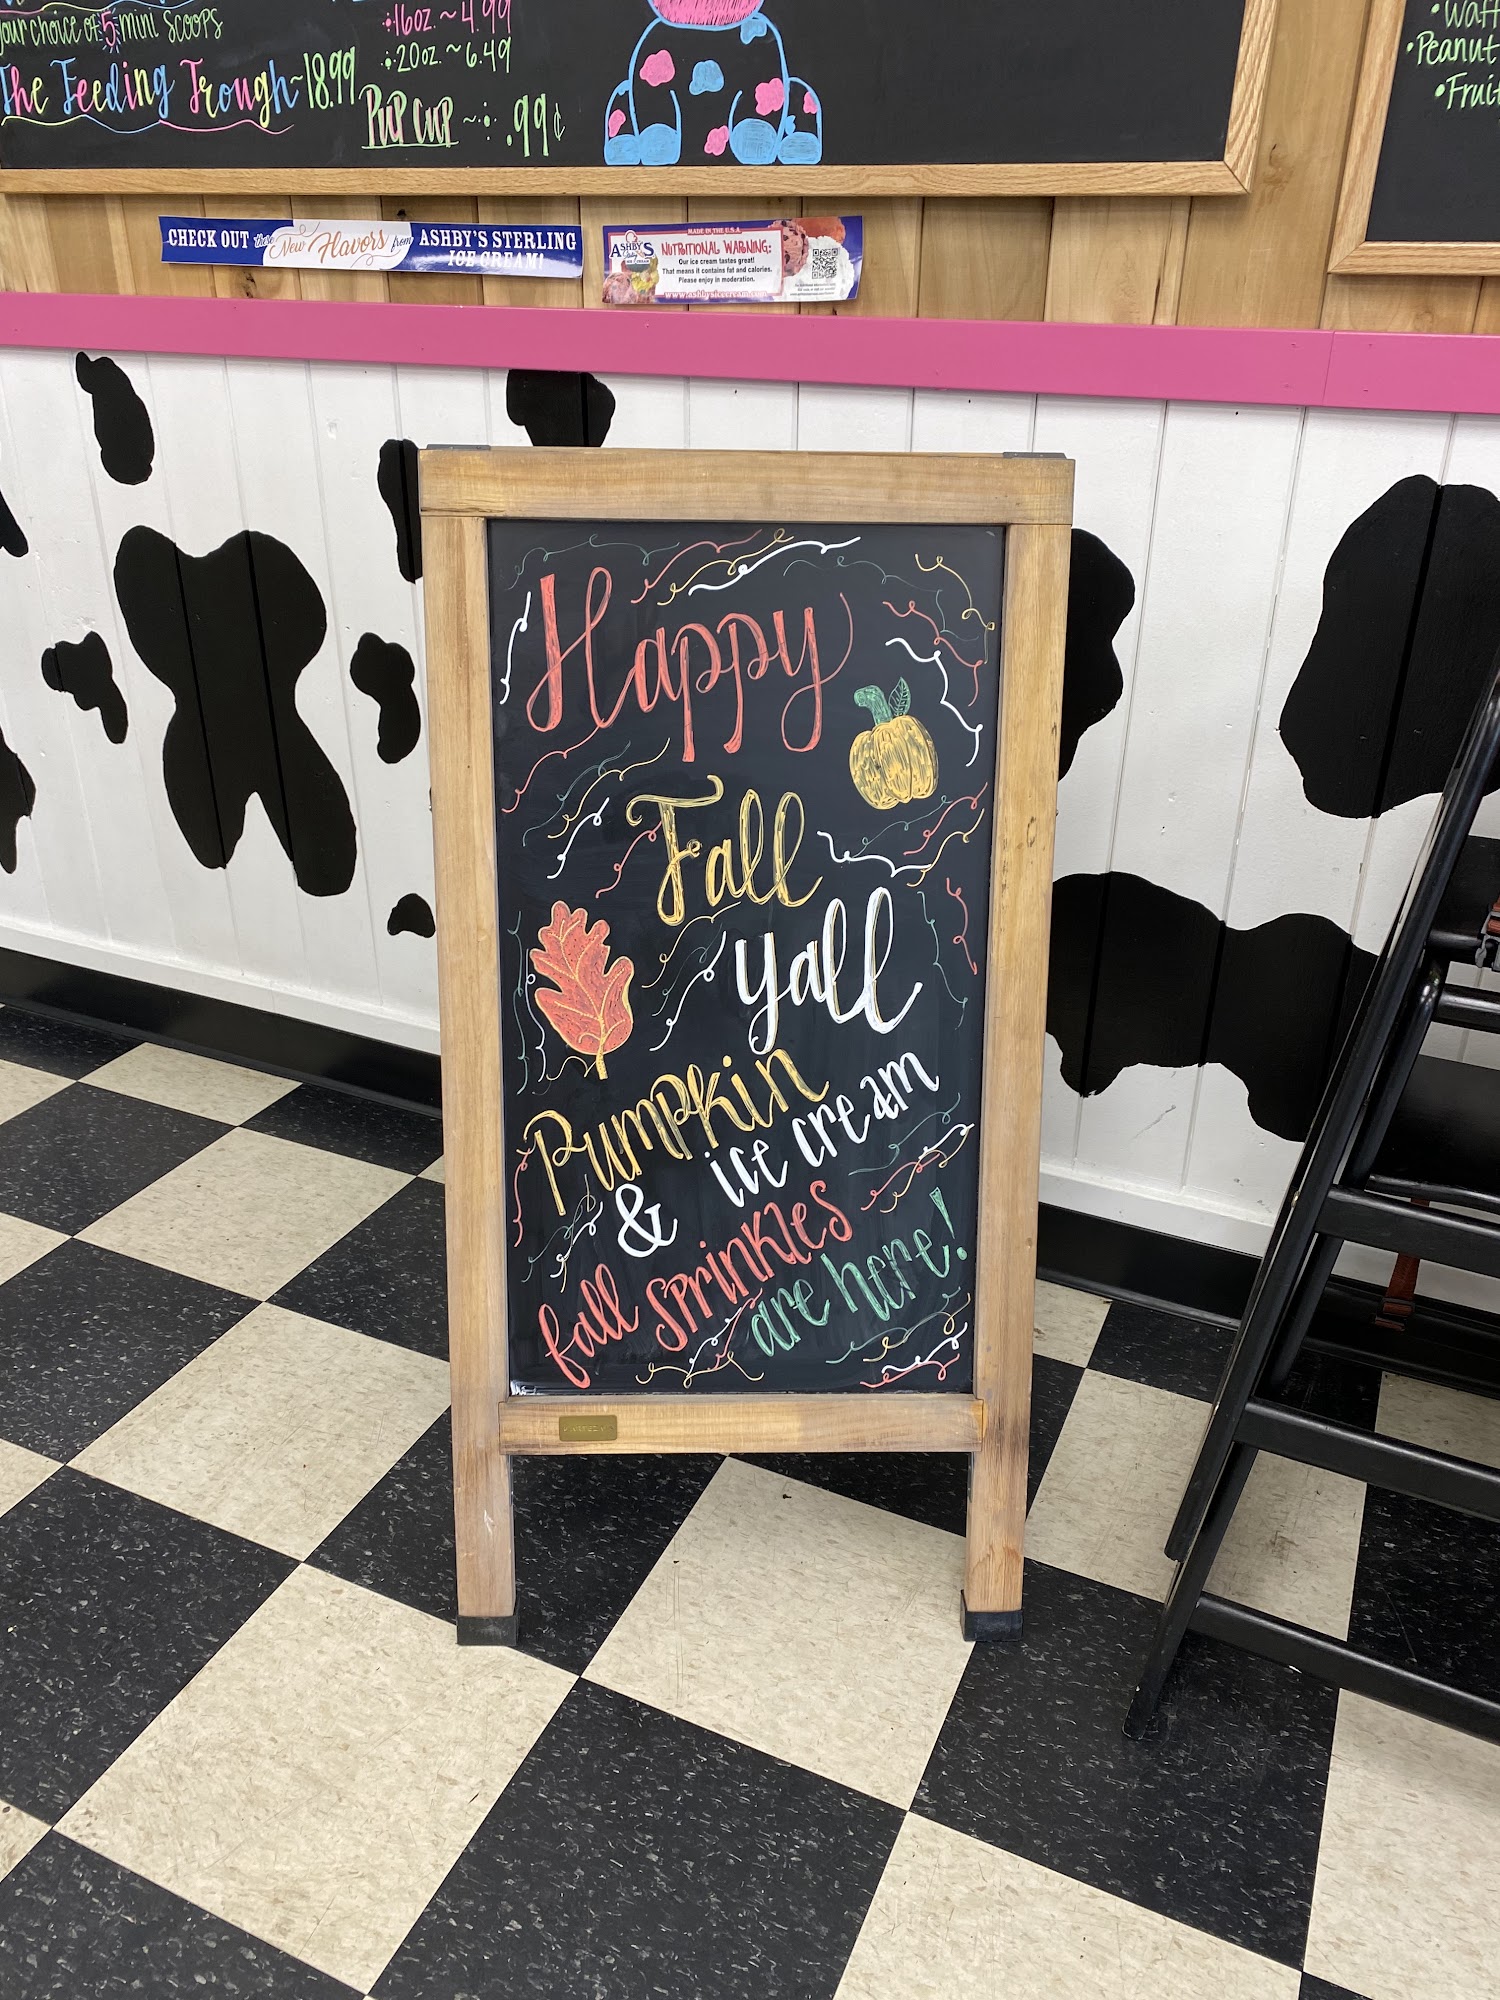 your choice of 5 mini scoops
The Feeding Trough~18.99
16oz. ~ 4.99
20oz. ~ 6.49
Pup Cup ~ .99¢
Peanut
Fruit
CHECK OUT these New Flavors from ASHBY'S STERLING ICE CREAM!
MADE IN THE U.S.A
ASHBY'S
NUTRITIONAL WARNING:
Our ice cream tastes great!
That means it contains fat and calories.
Please enjoy in moderation.
www.ashbysicecream.com
Happy
Fall
yall
Pumpkin
ice cream
&
fall sprinkles
are here!